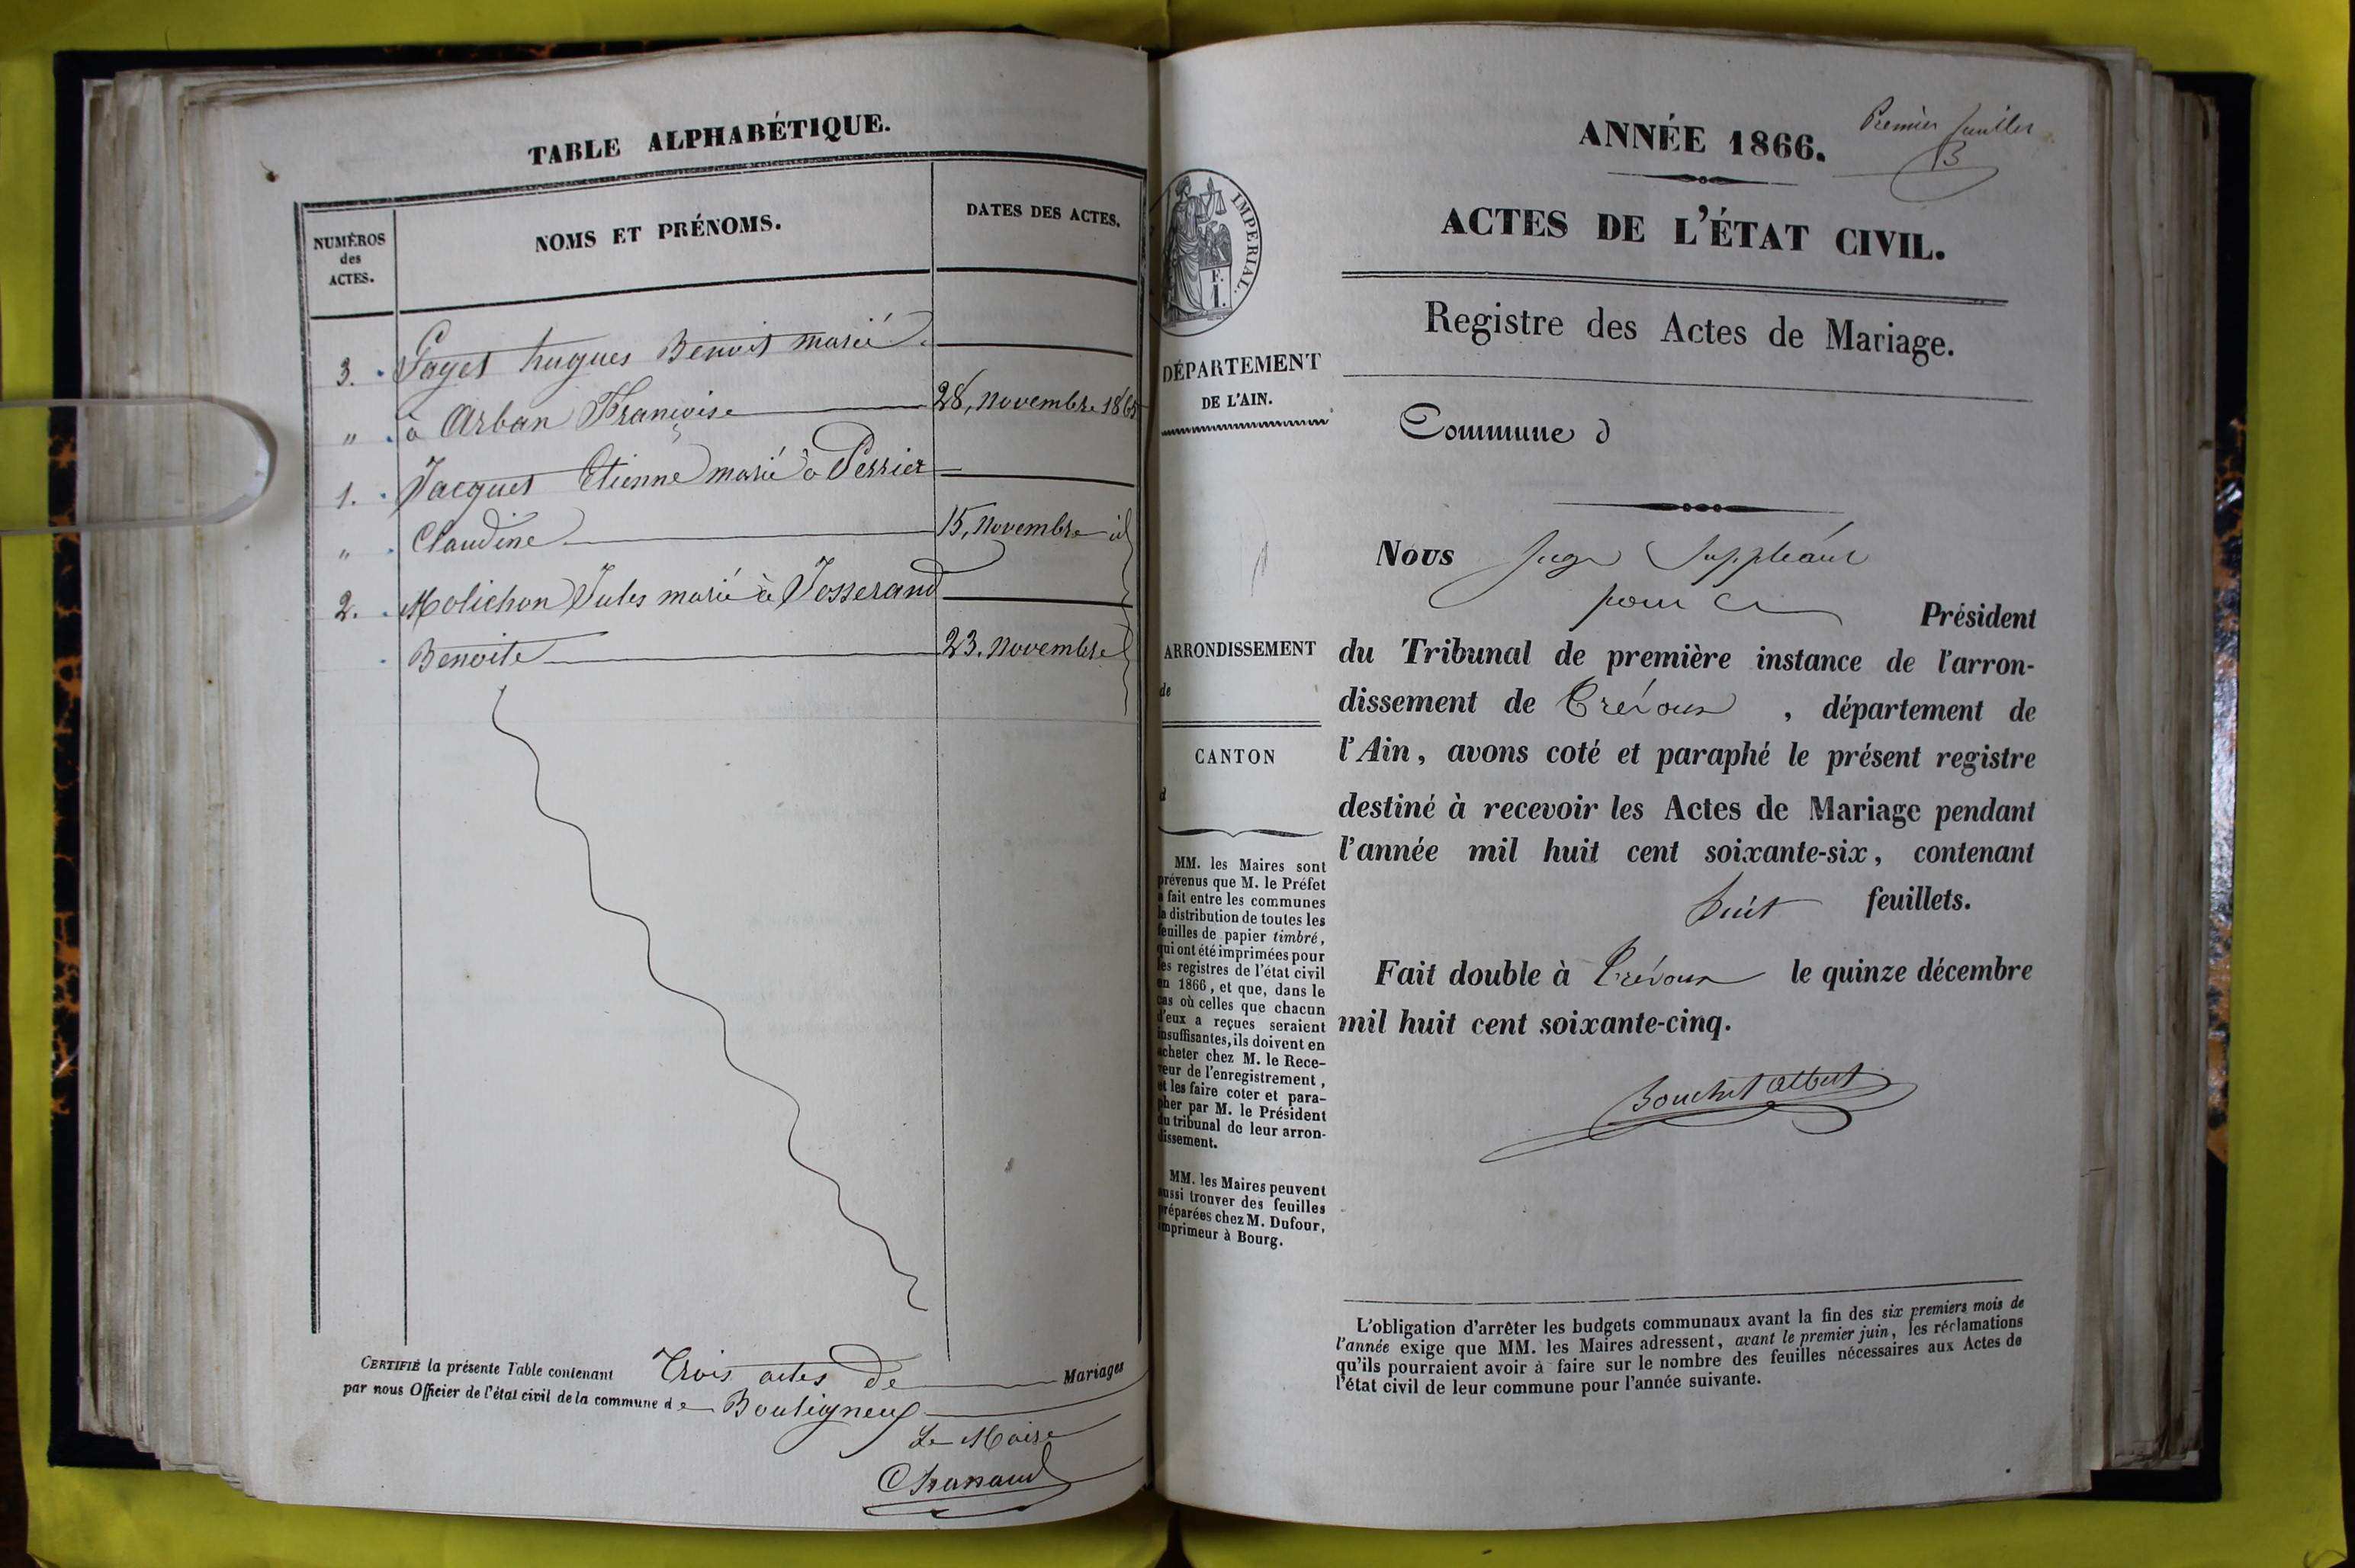 TABLE ALPHABÉTIQUE.
NUMÉROS
des
ACTES.
NOMS ET PRÉNOMS.
DATES DES ACTES.
3. Payet hugues Benoit marié
" à Arban Françoise 28, novembre 1865
1. Jacquet Etienne marié à Perrier
" Claudine 15, novembre id
2. Molichon Jules marié à Josserand
Benoite 23. novembre
CERTIFIÉ la présente Table contenant Trois actes de Mariages
par nous Officier de l'état civil de la commune de Bouligneux
Le Maire
ANNÉE 1866.
Premier feuillet
B
ACTES DE L'ÉTAT CIVIL.
Registre des Actes de Mariage.
IMPERIAL.
F.
1.
DÉPARTEMENT
DE L'AIN.
Commune d
ARRONDISSEMENT
de
CANTON
d
MM. les Maires sont
prévenus que M. le Préfet
a fait entre les communes
la distribution de toutes les
feuilles de papier timbré,
qui ont été imprimées pour
les registres de l'état civil
en 1866, et que, dans le
cas où celles que chacun
d'eux a reçues seraient
insuffisantes, ils doivent en
acheter chez M. le Rece-
veur de l'enregistrement,
et les faire coter et para-
pher par M. le Président
du tribunal de leur arron-
dissement.
MM. les Maires peuvent
aussi trouver des feuilles
préparées chez M. Dufour,
imprimeur à Bourg.
Nous Juge Suppléant
pour le Président
du Tribunal de première instance de l'arron-
dissement de Trévoux, département de
l'Ain, avons coté et paraphé le présent registre
destiné à recevoir les Actes de Mariage pendant
l'année mil huit cent soixante-six, contenant
huit feuillets.
Fait double à Trévoux le quinze décembre
mil huit cent soixante-cinq.
Bouchet Albert
L'obligation d'arrêter les budgets communaux avant la fin des six premiers mois de
l'année exige que MM. les Maires adressent, avant le premier juin, les réclamations
qu'ils pourraient avoir à faire sur le nombre des feuilles nécessaires aux Actes de
l'état civil de leur commune pour l'année suivante.